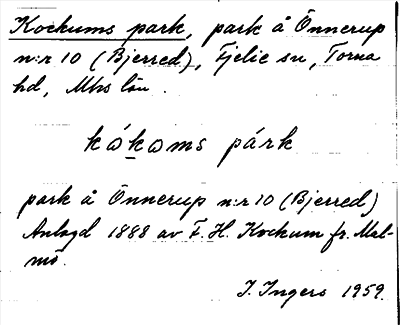 Kockums park, park å Önnerup
n:r 10 (Bjerred), Fjelie sn, Torna
hd, Mhs län.
kåkoms párk
park å Önnerup n:r 10 (Bjerred)
Anlagd 1888 av F. H. Kockum fr. Mal-
mö.
I. Ingers 1959.